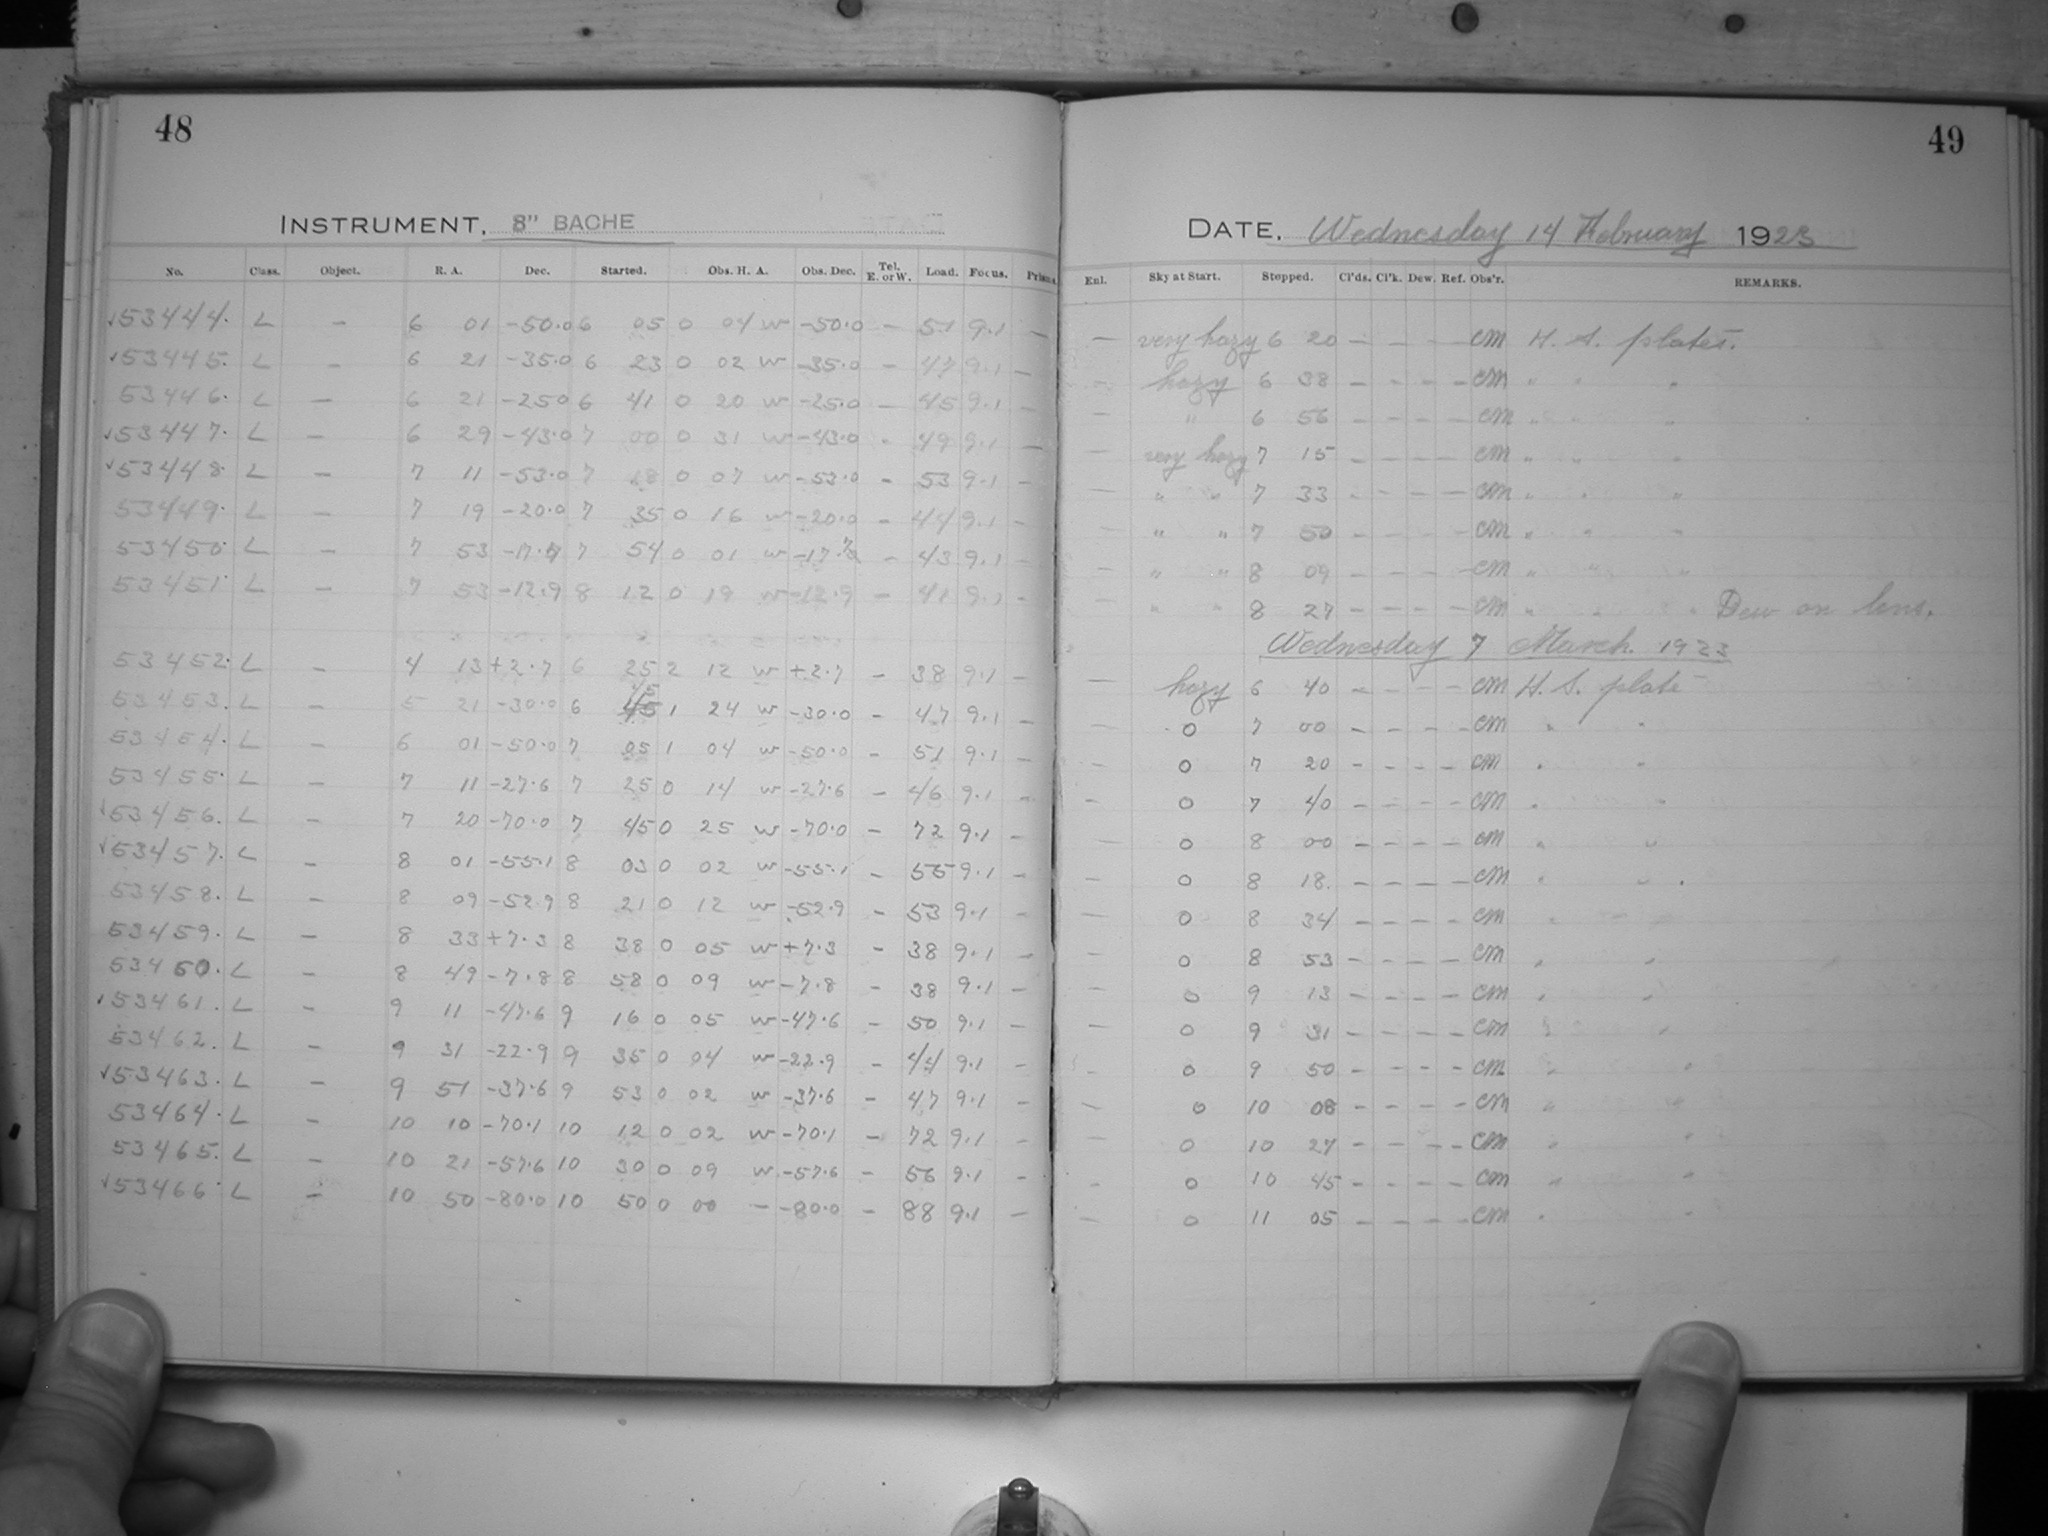 48
INSTRUMENT, 8" BACHE
No. Class. Object. R. A. Dec. Started. Obs. H. A. Obs. Dec. Tel. E. or W. Load. Focus. Prism.
√53444. L – 6 01 -50.0 6 05 0 04 w -50.0 – 51 9.1 –
√53445. L – 6 21 -35.0 6 23 0 02 w -35.0 – 47 9.1 –
53446. L – 6 21 -25.0 6 41 0 20 w -25.0 – 45 9.1 –
√53447. L – 6 29 -43.0 7 00 0 31 w -43.0 – 49 9.1 –
√53448. L – 7 11 -53.0 7 18 0 07 w -53.0 – 53 9.1 –
53449. L – 7 19 -20.0 7 35 0 16 w -20.0 – 44 9.1 –
53450. L – 7 53 -17.7 7 54 0 01 w -17.7 – 43 9.1 –
53451. L – 7 53 -12.9 8 12 0 19 w -12.9 – 41 9.1 –
53452. L – 4 13 +2.7 6 25 2 12 w +2.7 – 38 9.1 –
53453. L – 5 21 -30.0 6 45 1 24 w -30.0 – 47 9.1 –
53454. L – 6 01 -50.0 7 05 1 04 w -50.0 – 51 9.1 –
53455. L – 7 11 -27.6 7 25 0 14 w -27.6 – 46 9.1 –
√53456. L – 7 20 -70.0 7 45 0 25 w -70.0 – 72 9.1 –
√53457. L – 8 01 -55.1 8 03 0 02 w -55.1 – 55 9.1 –
53458. L – 8 09 -52.9 8 21 0 12 w -52.9 – 53 9.1 –
53459. L – 8 33 +7.3 8 38 0 05 w +7.3 – 38 9.1 –
53460. L – 8 49 -7.8 8 58 0 09 w -7.8 – 38 9.1 –
√53461. L – 9 11 -47.6 9 16 0 05 w -47.6 – 50 9.1 –
53462. L – 9 31 -22.9 9 35 0 04 w -22.9 – 44 9.1 –
√53463. L – 9 51 -37.6 9 53 0 02 w -37.6 – 47 9.1 –
53464. L – 10 10 -70.1 10 12 0 02 w -70.1 – 72 9.1 –
53465. L – 10 21 -57.6 10 30 0 09 w -57.6 – 56 9.1 –
√53466 L – 10 50 -80.0 10 50 0 00 – -80.0 – 88 9.1 –
49
DATE, Wednesday 14 February 1923
Enl. Sky at Start. Stopped. Cl'ds. Cl'k. Dew. Ref. Obs'r. REMARKS.
– very hazy 6 20 – – – – CM H. S. plates.
– hazy 6 38 – – – – CM " " "
– " 6 56 – – – – CM " " "
– very hazy 7 15 – – – – CM " " "
– " " 7 33 – – – – CM " " "
– " " 7 50 – – – – CM " " "
– " " 8 09 – – – – CM " " "
– " " 8 27 – – – – CM " " " Dew on lens.
Wednesday 7 March 1923
– hazy 6 40 – – – – CM H. S. plate
– 0 7 00 – – – – CM " "
– 0 7 20 – – – – CM " "
– 0 7 40 – – – – CM " "
– 0 8 00 – – – – CM " "
– 0 8 18. – – – – CM " "
– 0 8 34 – – – – CM " "
– 0 8 53 – – – – CM " "
– 0 9 13 – – – – CM " "
– 0 9 31 – – – – CM " "
– 0 9 50 – – – – CM " "
– 0 10 08 – – – – CM " "
– 0 10 27 – – – – CM " "
– 0 10 45 – – – – CM " "
– 0 11 05 – – – – CM " "